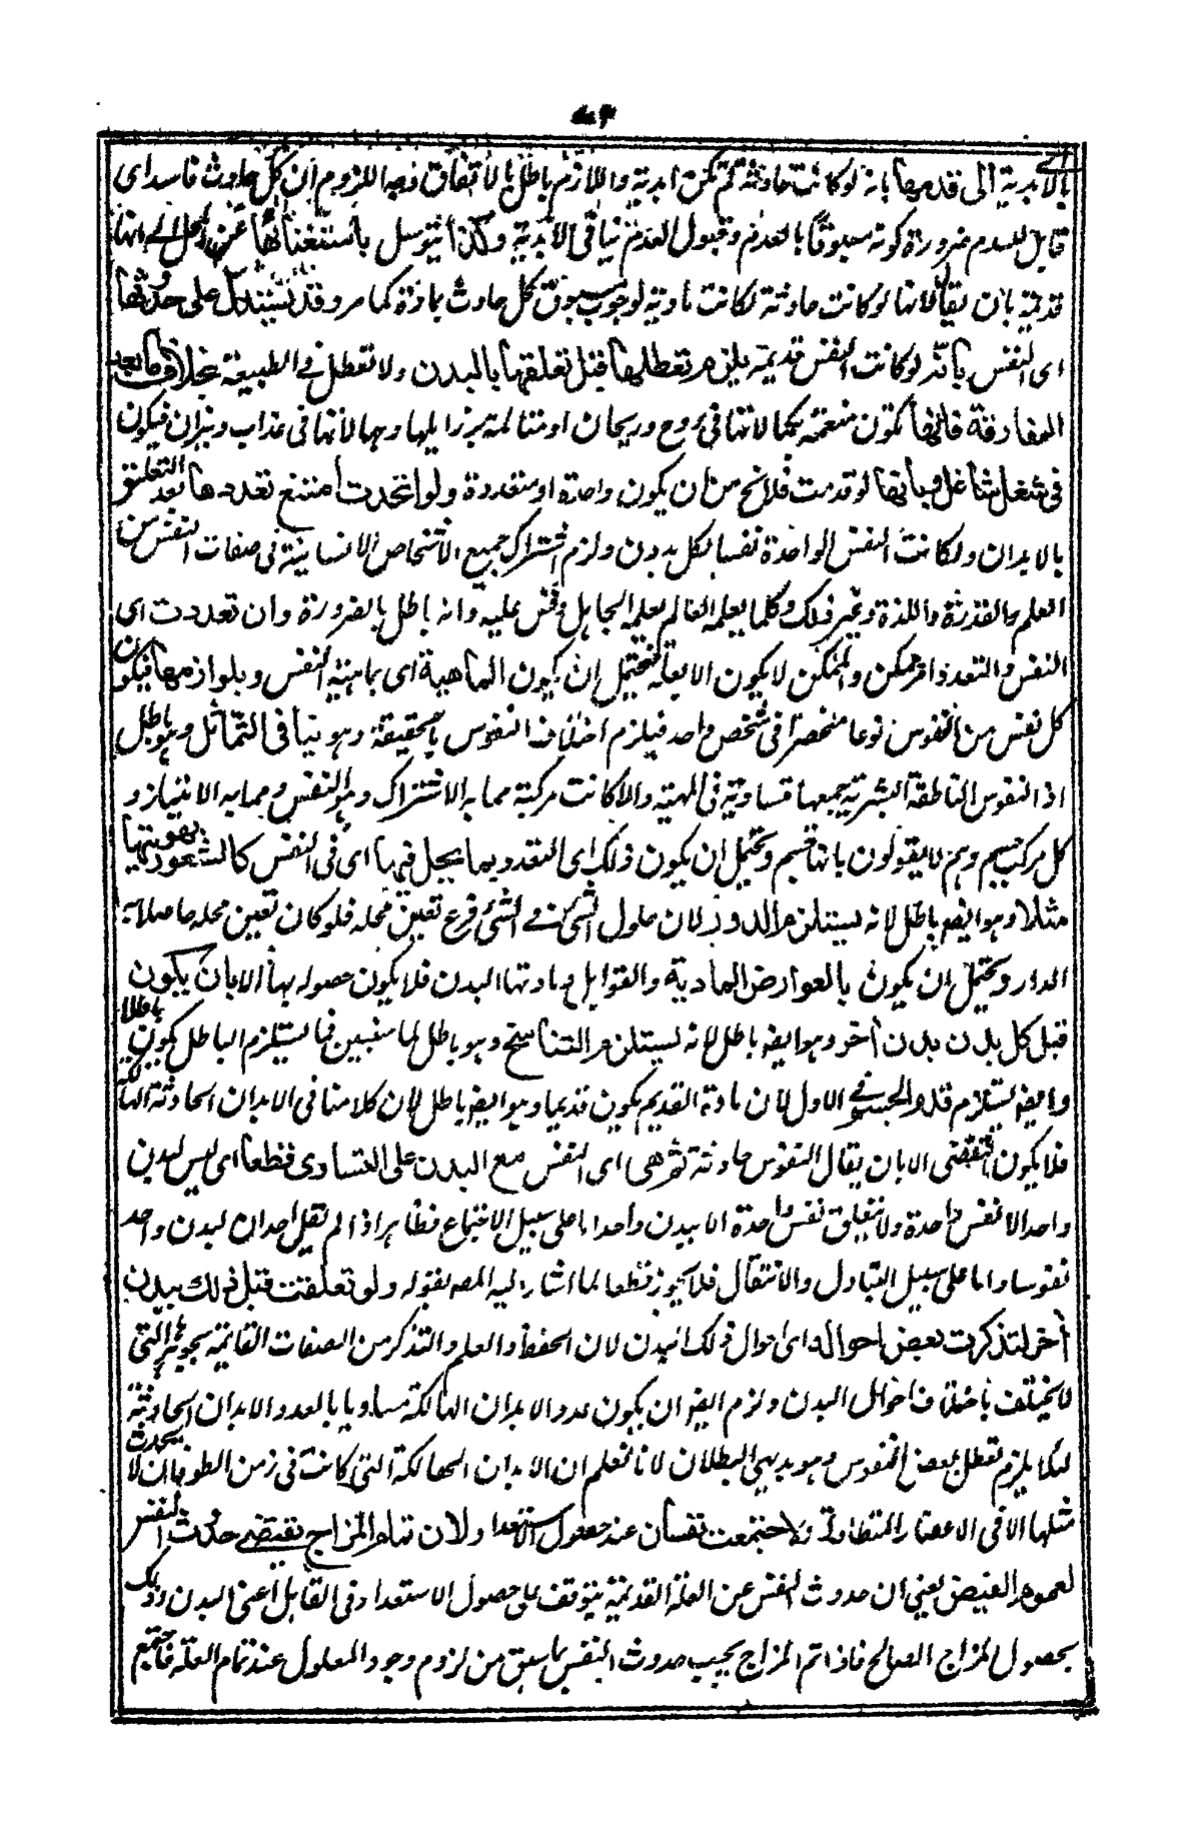 بالابدية الى قدمها بانه لو كانت حادثة لم تكن ابدية واللازم باطل بالاتفاق وجه اللزوم ان كل حادث فاسد اى
قابل للعدم ضرورة كونه مسبوقا بالعدم وقبول العدم ينافى الابدية وكذا يتوسل باستغنائها عن المحل الى انها
قديمة بان يقال لانها لو كانت حادثة لكانت مادية لوجوب سبوق كل حادث بمادة كما مر وقد يستدل على حدوثها
اى النفس بانه لو كانت النفس قديمة يلزم تعطلها قبل تعلقها بالبدن ولا تعطل فى الطبيعة بخلاف ما بعد
المفارقة فانها تكون متنعمة بكمالاتها فى روح وريحان او متالمة برذايلها وجهالاتها فى عذاب ونيران فيكون
فى شغل شاغل وبانها لو قدمت فلا يخ من ان يكون واحدة او متعددة ولو اتحدت امتنع تعددها بعد التعلق
بالابدان ولكانت النفس الواحدة نفسا لكل بدن ولزم اشتراك جميع الاشخاص الانسانية فى صفات النفس من
العلم والقدرة واللذة وغير ذلك وكلما يعلمه العالم يعلمه الجاهل وقس عليه وانه باطل بالضرورة وان تعددت اى
النفس والتعدد امر ممكن والممكن لا يكون الا بعلة فيحتمل ان يكون الماهية اى بماهية النفس وبلوازمها فيكون
كل نفس من النفوس نوعا منحصرا فى شخص واحد فيلزم اختلاف النفوس بالحقيقة وهو ينافى التماثل وهو باطل
اذ النفوس الناطقة البشرية جميعها متساوية فى المهية والا كانت مركبة مما به الاشتراك وهو النفس ومما به الامتياز و
كل مركب جسم وهم لا يقولون بانها جسم ويحتمل ان يكون ذلك اى التعدد بما يحل فيها اى فى النفس كالشعور بهويتها
مثلا وهو ايضا باطل لانه يستلزم الدور لان حلول الشئ فى الشئ فرع تعين محله فلو كان تعين محله حاصلا به
الدار ويحتمل ان يكون بالعوارض المادية والقوابل ومادتها البدن فلا يكون حصوله بها الا بان يكون
قبل كل بدن بدن آخر وهو ايضا باطل لانه يستلزم التناسخ وهو باطل لما سنبين فما يستلزم الباطل يكون باطلا
وايضا يستلزم قدم الجسم فى الاول لان مادة القديم يكون قديما وهو ايضا باطل لان كلامنا فى الابدان الحادثة الهالكة
فلا يكون التقضى الا بان يقال النفوس حادثة ثم هى اى النفس مع البدن على التساوى قطعا اى ليس لبدن
واحد الا نفس واحدة ولا يتعلق نفس واحدة الا ببدن واحد اما على سبيل الاجتماع فظاهر اذ لم يقل احد ان لبدن واحد
نفوسا واما على سبيل التبادل والانتقال فلا يجوز قطعا لما اشار اليه المصـ بقوله ولو تعلقت قبل ذلك ببدن
آخر لتذكرت بعض احواله اى احوال ذلك البدن لان الحفظ والعلم والتذكر من الصفات القائمة بجوهرها التى
لا يختلف باختلاف احوال البدن ولزم ايضا ان يكون عدد الابدان الهالكة مساويا بالعدد الابدان الحادثة
لئلا يلزم تعطل بعض النفوس وهو بديهى البطلان لانا نعلم ان الابدان الهالكة التى كانت فى زمن الطوفان لا يحدث
مثلها الا فى الاعصار المتطاولة ولاجتمعت نفسان عند حصول الاستعداد ولان تمام المزاج يقتضى حدوث النفس
لعموم الفيض يعنى ان حدوث النفس عن العلة القديمة يتوقف على حصول الاستعداد فى القابل اعنى البدن وذلك
بحصول المزاج الصالح فاذا تم المزاج يجب حدوث النفس لما سبق من لزوم وجود المعلول عند تمام العلة فاجتمع